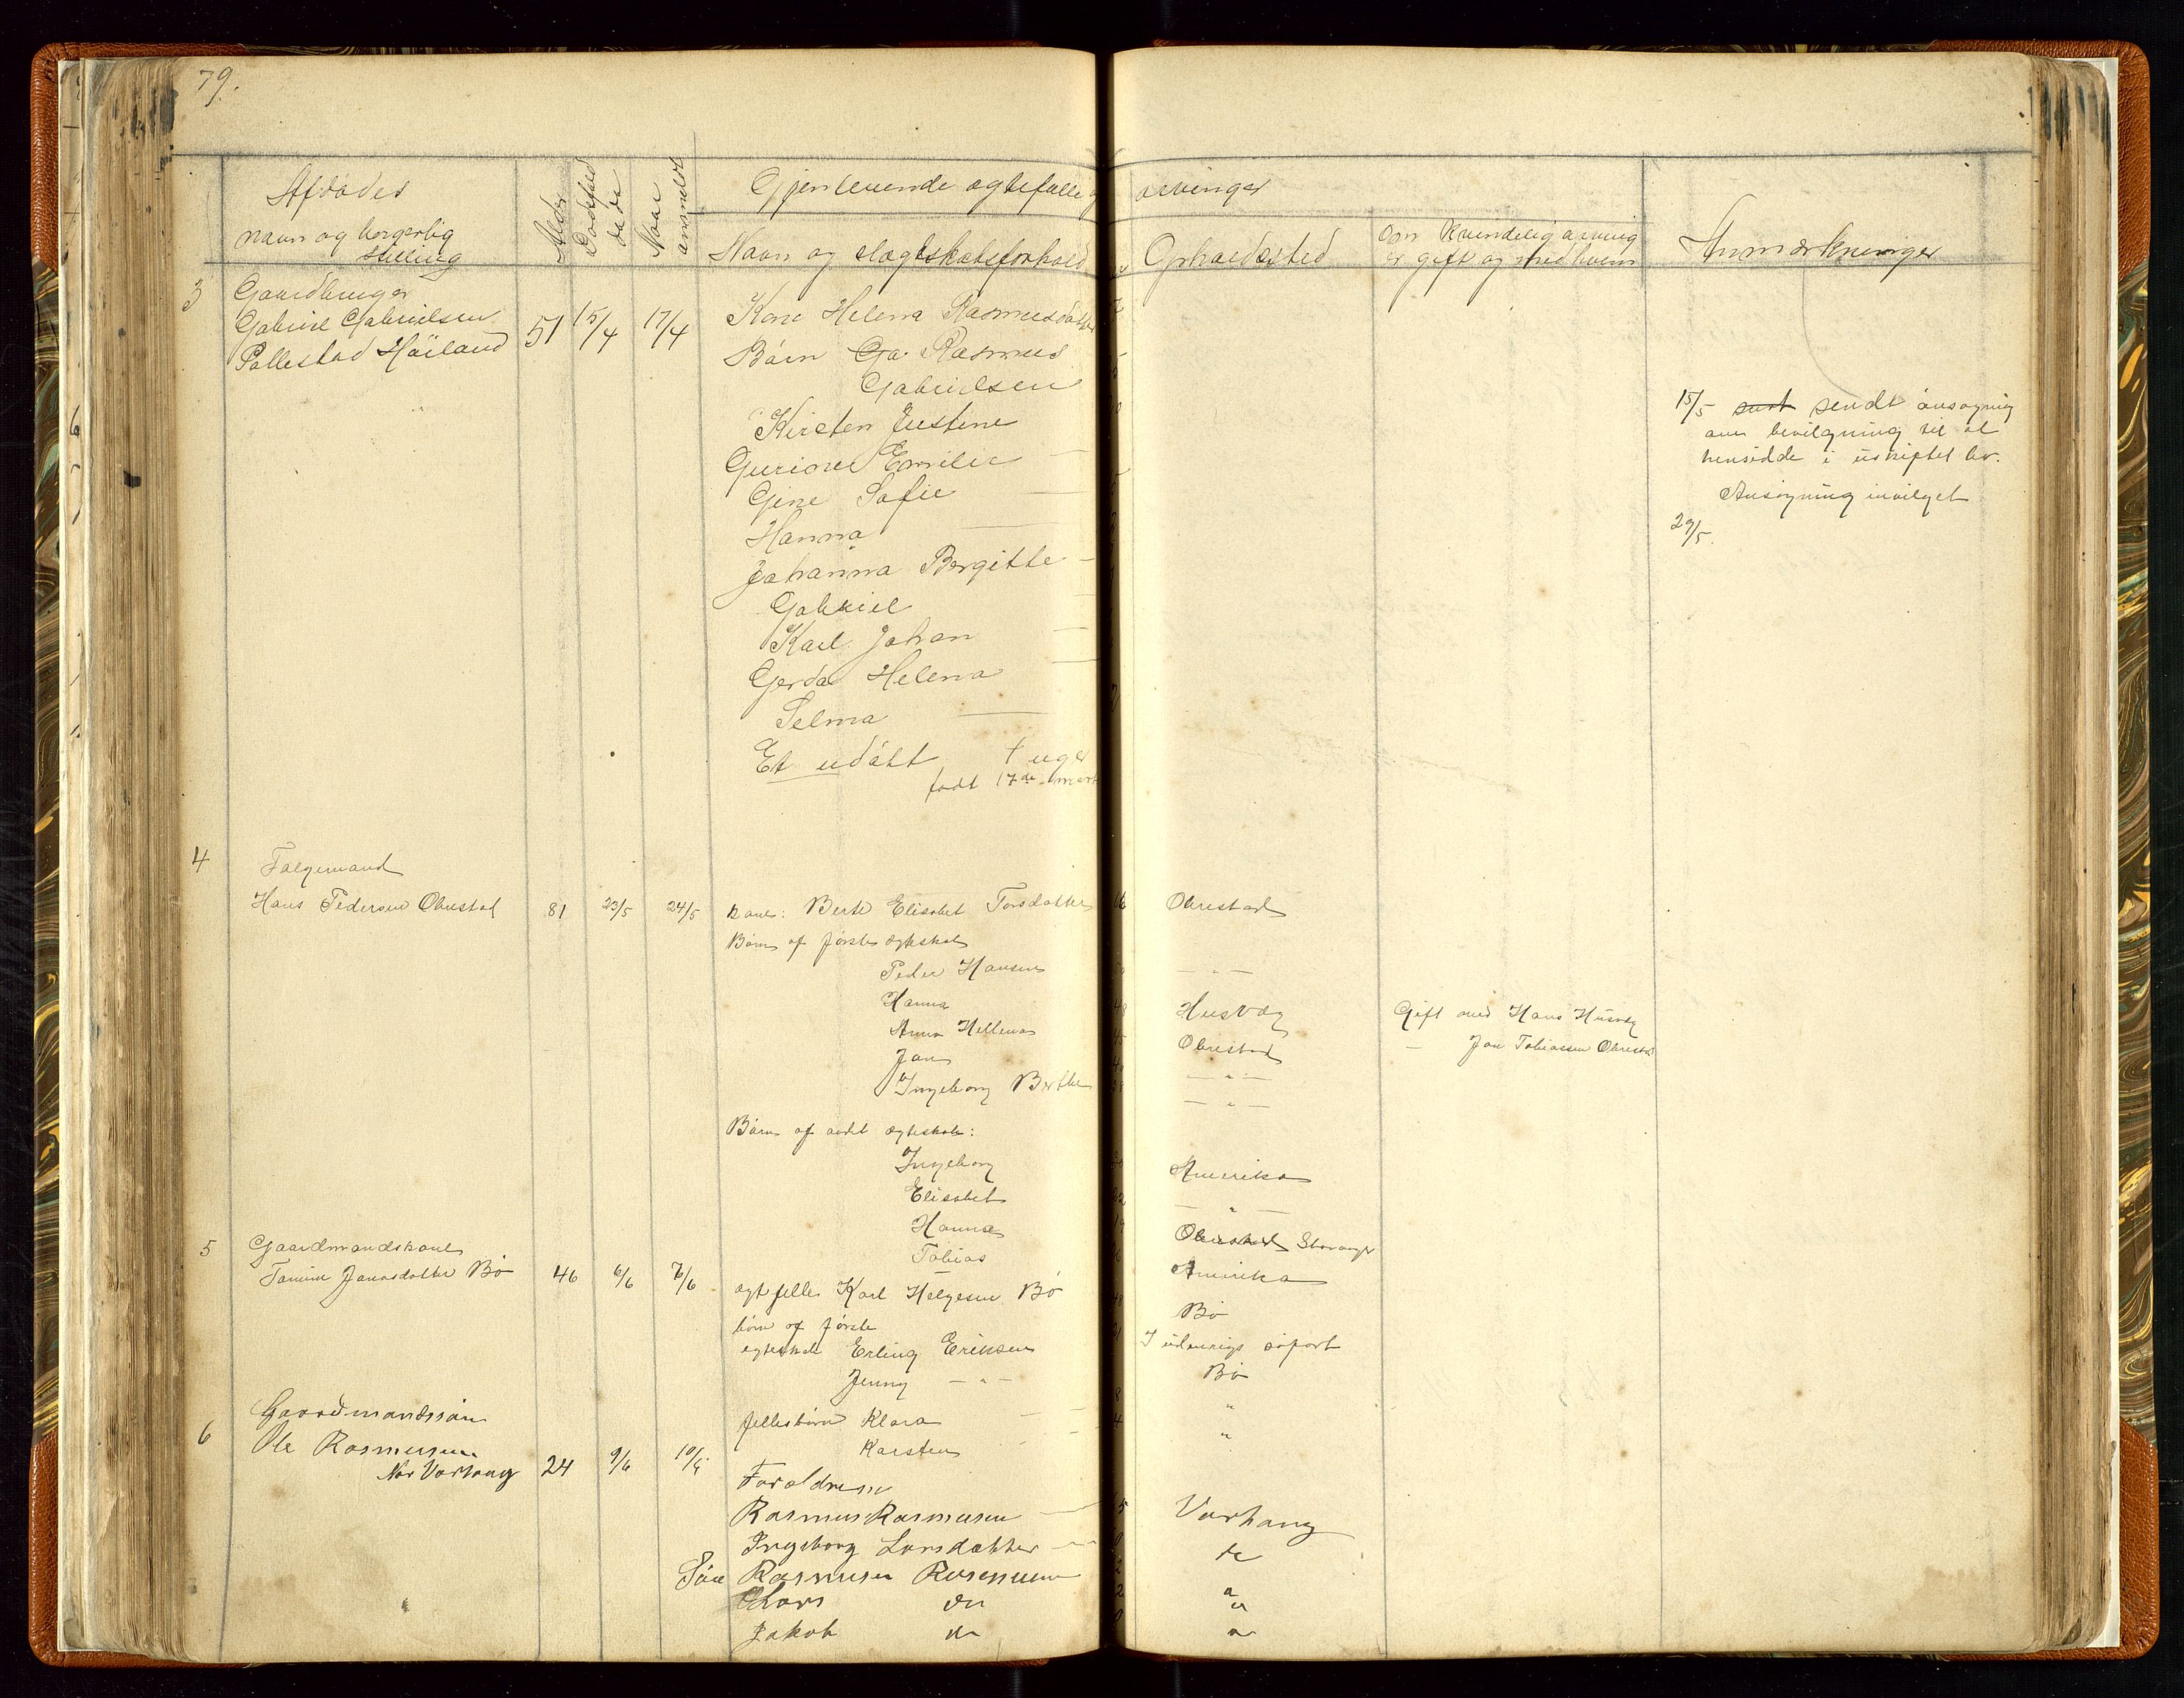 79.
Afdødes
navn og borgerlig
stilling
Alder
Dødsfald
dato
Naar
anmeldt
Gjenlevende ægtefælle og arvinger
Navn og slægtskabsforhold
Opholdssted
Om kvindelig arving
er gift og med hvem
Anmærkninger
3 Gaardbruger
Gabriel Gabrielsen
Pollestad Høiland 51 15/4 17/4
Kone Helena Rasmusdatter
Børn Ga. Rasmus
Gabrielsen
Kirsten Justine
Gurine Emilie —
Gine Sofie —
Hanna —
Johanna Bergitte —
Gabriel —
Karl Johan —
Gerda Helena —
Selma —
Et udøbt 7 uger
født 17de mart
15/5 sendt ansøgning
om bevilgning til at
hensidde i uskiftet bo.
Ansøgning invilget
29/5.
4 Følgemand
Hans Pedersen Obrestad 81 23/5 24/5 kone: Berte Elisabet Torsdatter Obrestad
Børn af første ægteskab
Peder Hansen — " —
Hanna Husvæg Gift med Hans Husvæg
Anna Hellena Obrestad — Jon Tobiassen Obrestad
Jon — " —
Ingeborg Berthe — " —
Børn af andet ægteskab:
Ingeborg Amerika
Elisabet — " —
Hanna Obrestad Stavanger
Tobias Amerika
5 Gaardmandskone
Tomine Jonasdatter Bø 46 6/6 7/6 ægtefelle Karl Helgesen Bø Bø
børn af første
egteskab Erling Eriksen I udenrigs søfart
Jenny — " — Bø
fellesbørn Klara — "
Karsten — "
6 Gaardmandssøn
Ole Rasmussen
Nor Varhaug 24 9/6 10/6
Forældrene
Rasmus Rasmussen — Varhaug
Ingeborg Larsdatter — do
Søn Rasmus Rasmussen "
Lars do "
Jakob do "